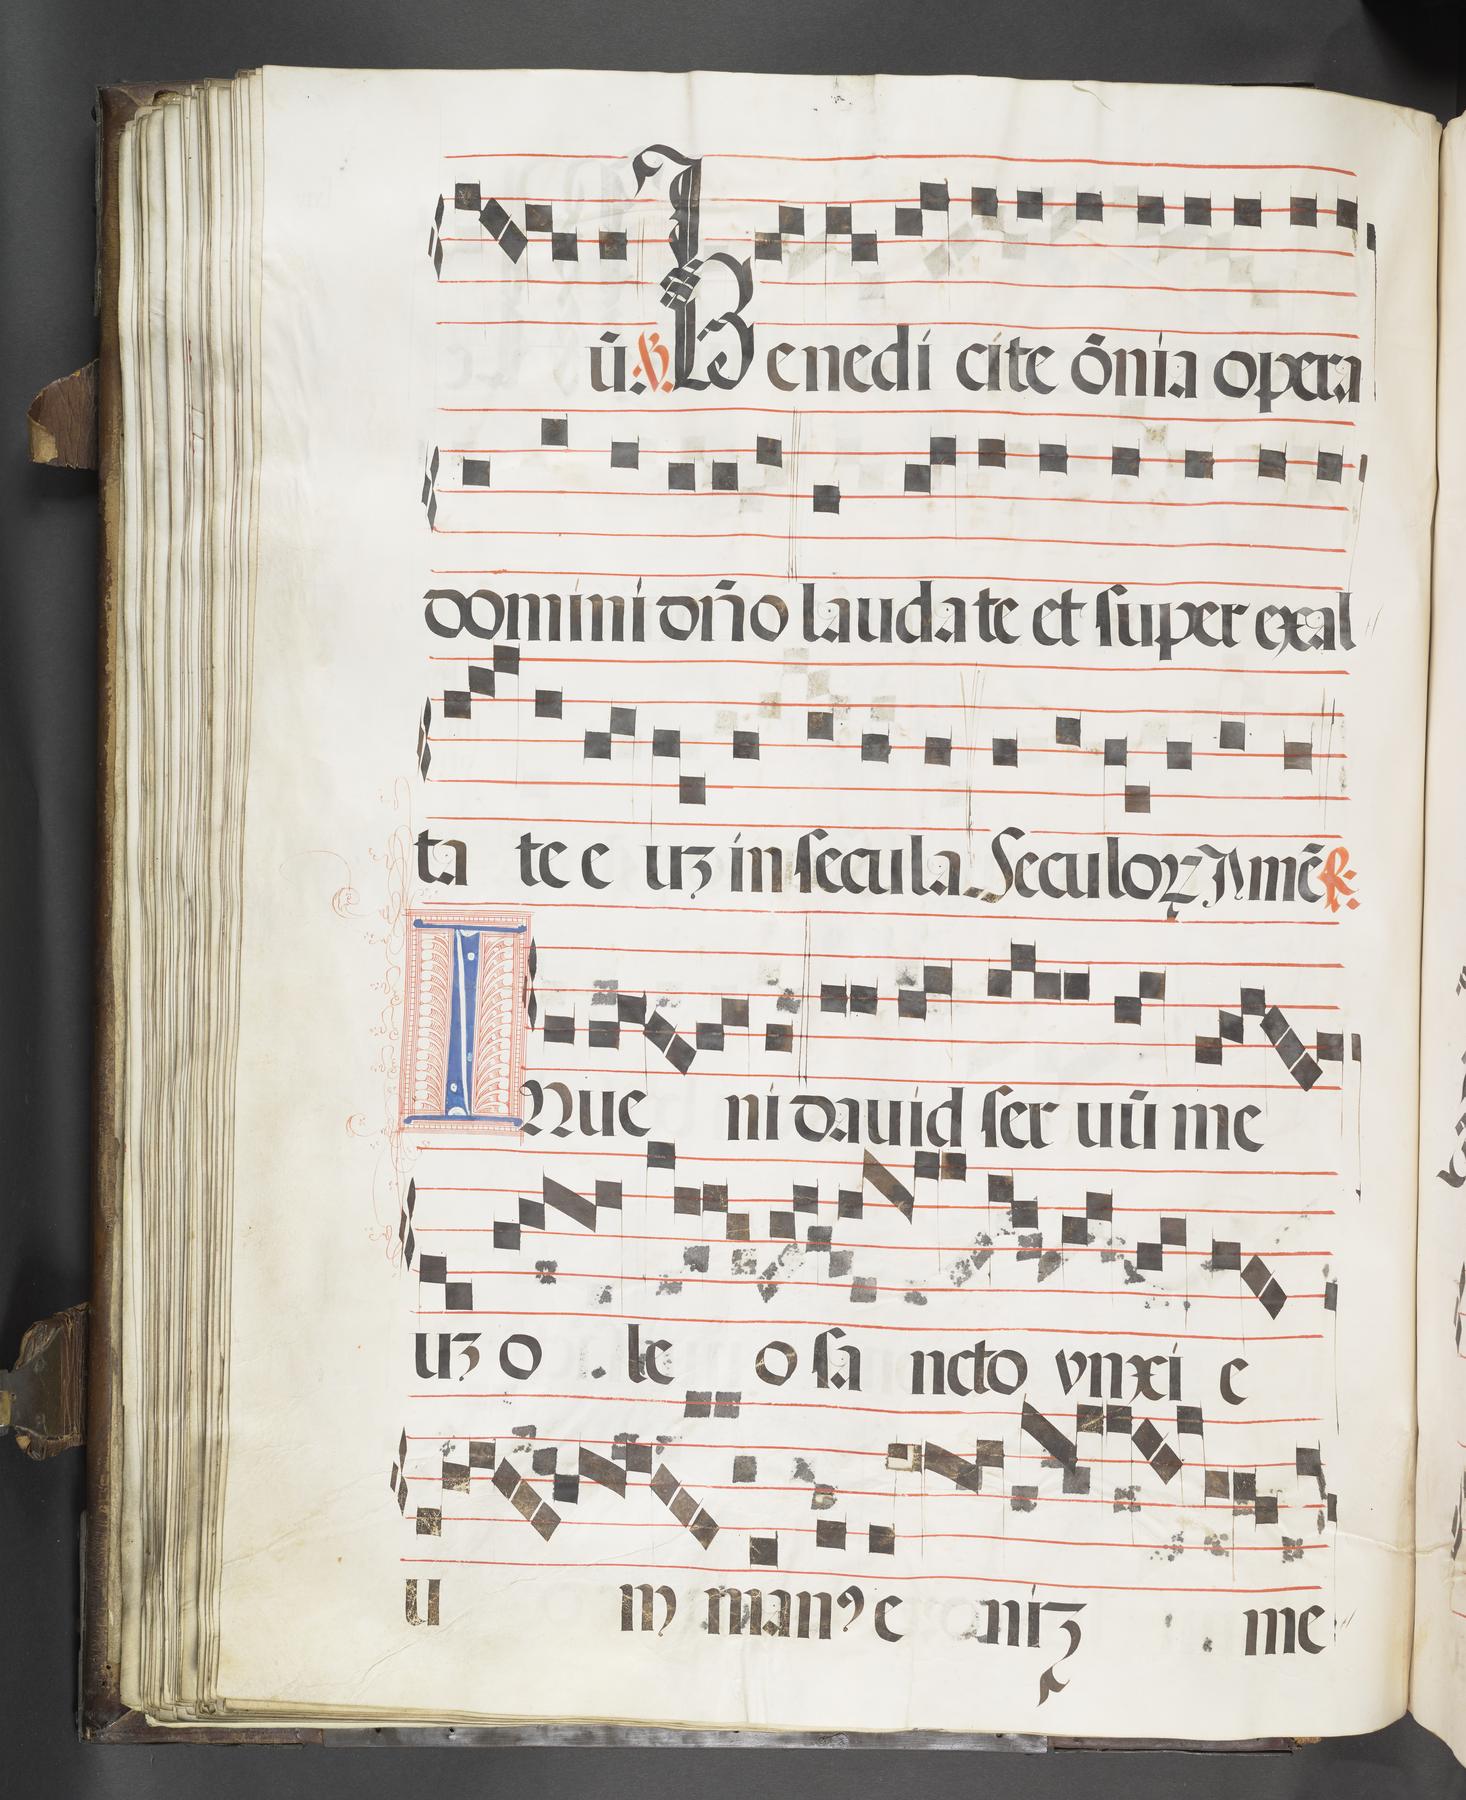 ū. ℣. Benedi cite ōnia opera
domini dño laudate et super exal
ta te e uʒ in secula. Seculoꝝ Amē ℟.
INue ni dauid ser uū me
uʒ o . le o sa ncto vnxi e
u m manꝰ e niʒ me